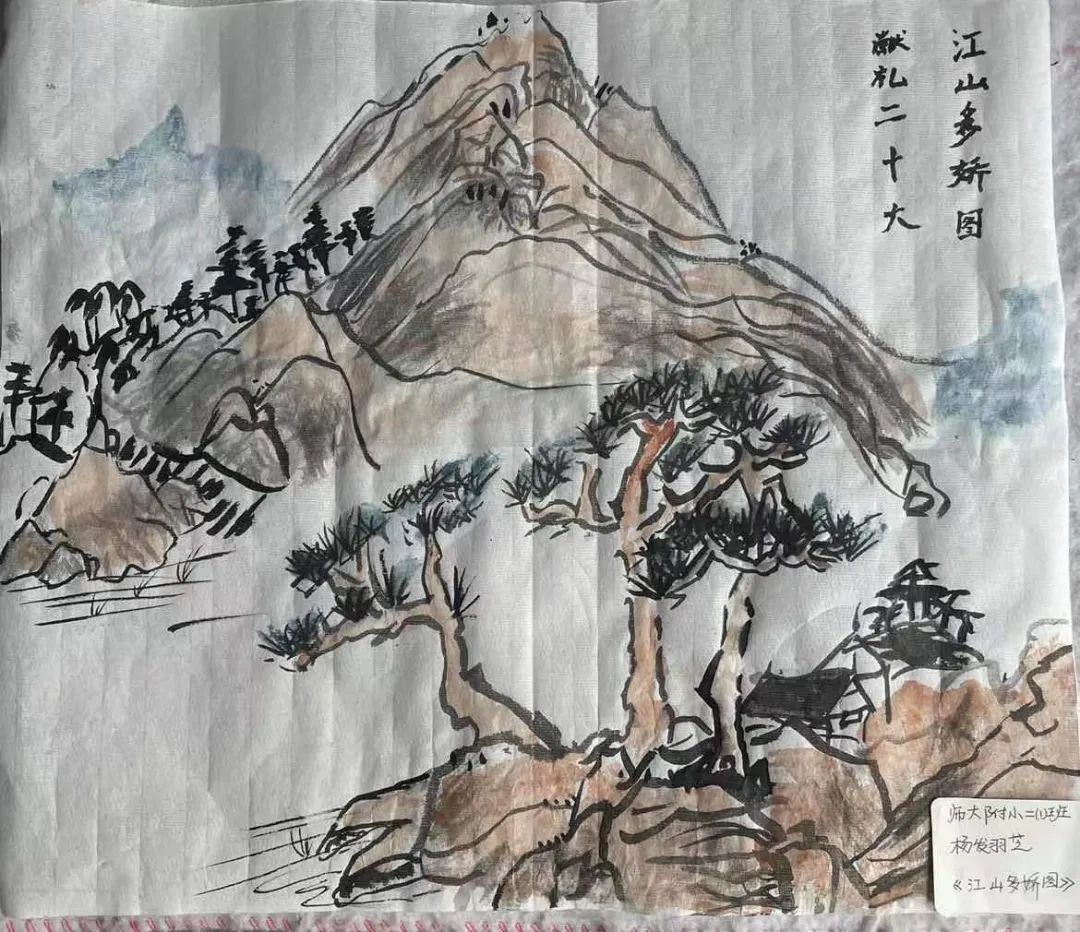 江山多娇图
献礼二十大
师大附小二(1)班
杨发羽芝
《江山多娇图》